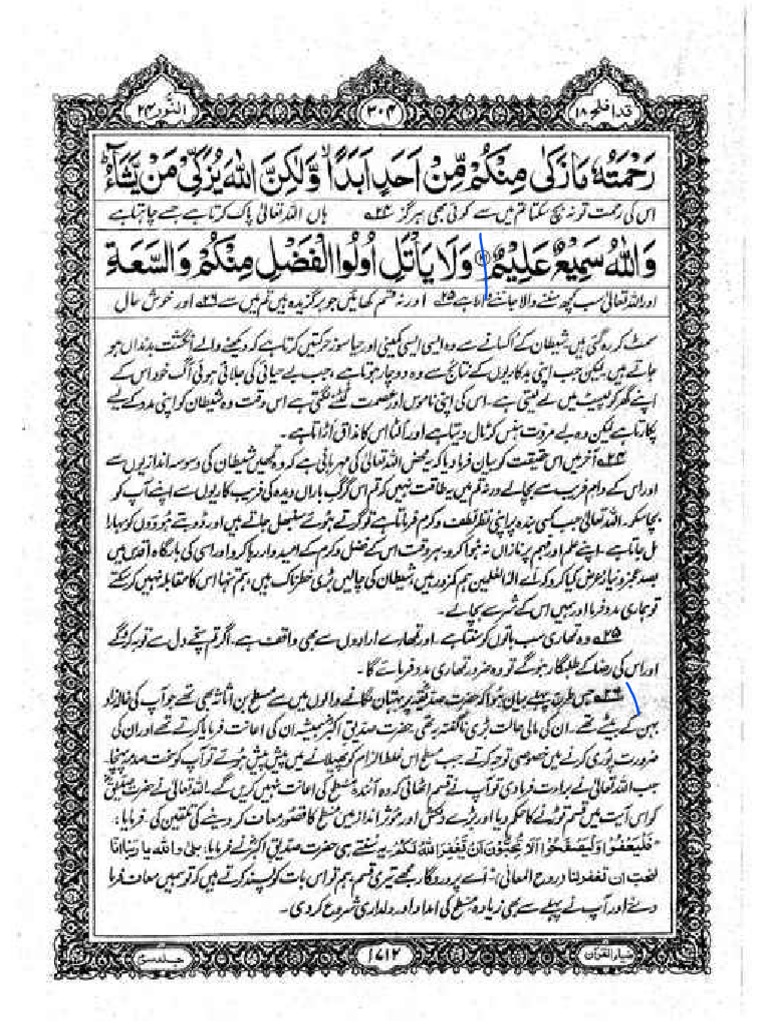 قد افلح ۱۸
۳۰۴
النّور ۲۴
رَحْمَتُهٗ مَا زَكٰى مِنْكُمْ مِّنْ اَحَدٍ اَبَدًا ۙ وَّلٰكِنَّ اللّٰهَ يُزَكِّيْ مَنْ يَّشَآءُ ؕ
اس کی رحمت تو نہ بچ سکتا تم میں سے کوئی بھی ہرگز ۲۴؎ ہاں اللہ تعالیٰ پاک کرتا ہے جسے چاہتا ہے
وَاللّٰهُ سَمِيْعٌ عَلِيْمٌ وَلَا يَأْتَلِ اُولُوا الْفَضْلِ مِنْكُمْ وَالسَّعَةِ
اور اللہ تعالیٰ سب کچھ سننے والا جاننے والا ہے ۲۵؎ اور نہ قسم کھائیں جو برگزیدہ ہیں تم میں سے ۲۶؎ اور خوش حال
سمٹ کر رہ گئی ہیں شیطان کے اکسانے سے وہ ایسی ایسی کمینی اور حیا سوز حرکتیں کرتا ہے کہ دیکھنے والے انگشت بدنداں ہو
جاتے ہیں لیکن جب اپنی بدکاریوں کے نتائج سے وہ دوچار ہوتا ہے، جب بے حیائی کی جلائی ہوئی آگ خود اس کے
اپنے گھر کو لپیٹ میں لے لیتی ہے۔ اس کی اپنی ناموس اور عصمت لٹنے لگتی ہے اس وقت وہ شیطان کو اپنی مدد کے لیے
پکارتا ہے لیکن وہ بے مروت ہنس کر ٹال دیتا ہے اور اُلٹا اس کا مذاق اُڑاتا ہے۔
۲۴؎ آخر میں اس حقیقت کو بیان فرما دیا کہ یہ محض اللہ تعالیٰ کی مہربانی ہے کہ وہ تمہیں شیطان کی وسوسہ اندازیوں سے
اور اس کے دام فریب سے بچا لے ورنہ تم میں یہ طاقت نہیں کہ تم اس گرگ باراں دیدہ کی فریب کاریوں سے اپنے آپ کو
بچا سکو۔ اللہ تعالیٰ جب کسی بندہ پر اپنی نظر لطف و کرم فرماتا ہے تو گرتے ہوئے سنبھل جاتے ہیں اور ڈوبتے ہوؤں کو سہارا
مل جاتا ہے۔ اپنے علم اور فہم پر نازاں نہ ہوا کرو۔ ہر وقت اس کے فضل و کرم کے امیدوار رہا کرو اور اسی کی بارگاہ اقدس میں
بصد عجز و نیاز عرض کیا کرو کہ اے الٰہ العٰلمین ہم کمزور ہیں، شیطان کی چالیں بڑی خطرناک ہیں، ہم تنہا اس کا مقابلہ نہیں کر سکتے
تو ہماری مدد فرما اور ہمیں اس کے شر سے بچا لے۔
۲۵؎ وہ تمہاری سب باتوں کو سنتا ہے۔ اور تمہارے ارادوں سے بھی واقف ہے۔ اگر تم سچے دل سے توبہ کرو گے
اور اس کی رضا کے طلبگار ہو گے تو وہ ضرور تمہاری مدد فرمائے گا۔
۲۶؎ جس طرح پہلے بیان ہوا کہ حضرت صدیقہ پر بہتان لگانے والوں میں سے مسطح بن اثاثہ بھی تھے جو آپ کی خالہ زاد
بہن کے بیٹے تھے۔ ان کی مالی حالت بڑی ناگفتہ بہ تھی حضرت صدیق اکبر ہمیشہ ان کی اعانت فرمایا کرتے تھے اور ان کی
ضرورت پوری کرنے میں خصوصی توجہ کرتے۔ جب مسطح اس غلط الزام کو پھیلانے میں پیش پیش ہوئے تو آپ کو سخت صدمہ پہنچا۔
جب اللہ تعالیٰ نے براءت فرما دی تو آپ نے قسم اٹھائی کہ وہ آئندہ مسطح کی اعانت نہیں کریں گے۔ اللہ تعالیٰ نے حضرت صدیق
کو اس آیت میں قسم توڑنے کا حکم دیا اور بڑے دلکش اور مؤثر انداز میں مسطح کا قصور معاف کر دینے کی تلقین کی۔ فرمایا:
"فَلْيَعْفُوْا وَلْيَصْفَحُوْا اَلَا تُحِبُّوْنَ اَنْ يَّغْفِرَ اللّٰهُ لَكُمْ" یہ سنتے ہی حضرت صدیق اکبر نے فرمایا: بلیٰ واللہ یا ربنا انا
لنحب ان تغفر لنا (روح المعانی) "اے پروردگار مجھے تیری قسم ہم تو اس بات کو پسند کرتے ہیں کہ تو ہمیں معاف فرما
دے" اور آپ نے پہلے سے بھی زیادہ مسطح کی امداد اور دلداری شروع کر دی۔
ضیاء القرآن
۱۷۱۲
جلد سوم